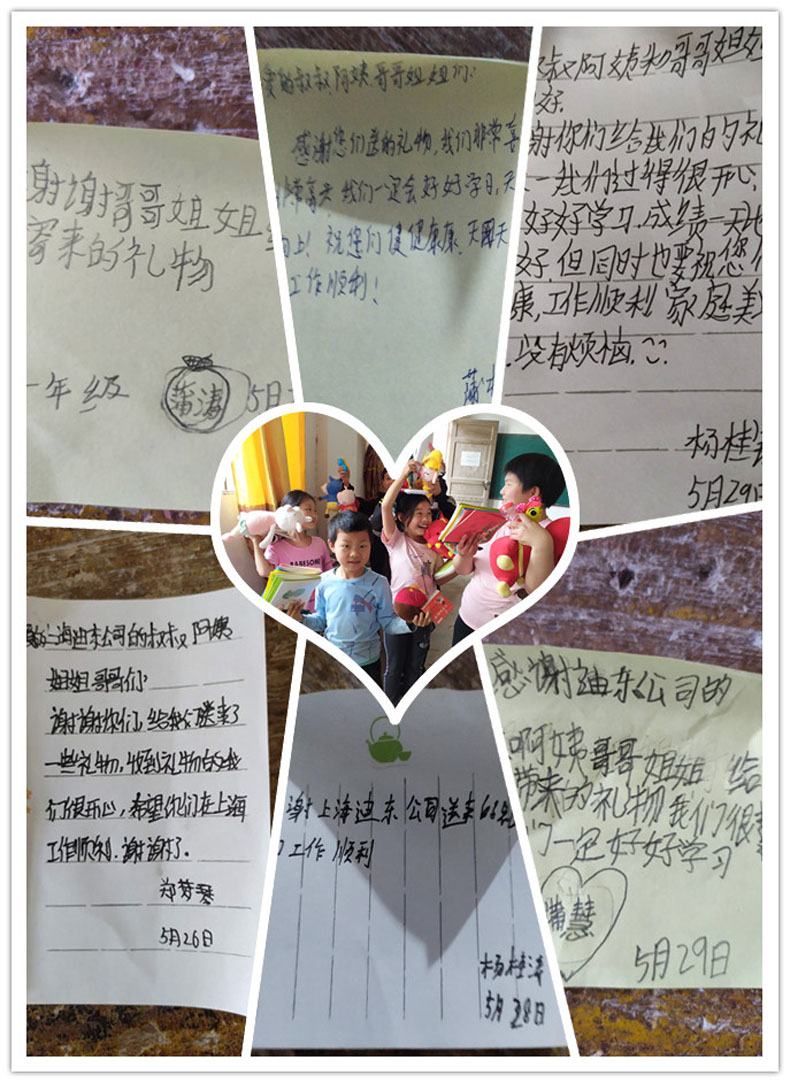 谢谢哥哥姐姐给
寄来的礼物
一年级
蒲涛
5月
爱的叔叔、阿姨、哥哥姐姐们:
感谢您们送的礼物,我们非常喜
非常高兴,我们一定会好好学习,天
向上!祝您们健健康康,天天
工作顺利!
叔叔阿姨和哥哥姐姐
好.
谢你们给我们的礼
我们过得很开心,
好好学习.成绩一天比
好,但同时也要祝您们
康,工作顺利 家庭美
没有烦恼.
杨桂
5月29日
上海迪东公司的叔叔 阿姨
姐姐哥哥们:
谢谢你们,给我们送来了
一些礼物,收到礼物的我
们很开心,希望你们在上海
工作顺利.谢谢了.
郑梦琴
5月26日
谢上海迪东公司送来的礼
工作顺利
杨桂涛
5月28日
感谢迪东公司的
啊姨哥哥姐姐给
带来的礼物我们很喜
们一定好好学习
蒲慧
5月29日
BABESOME